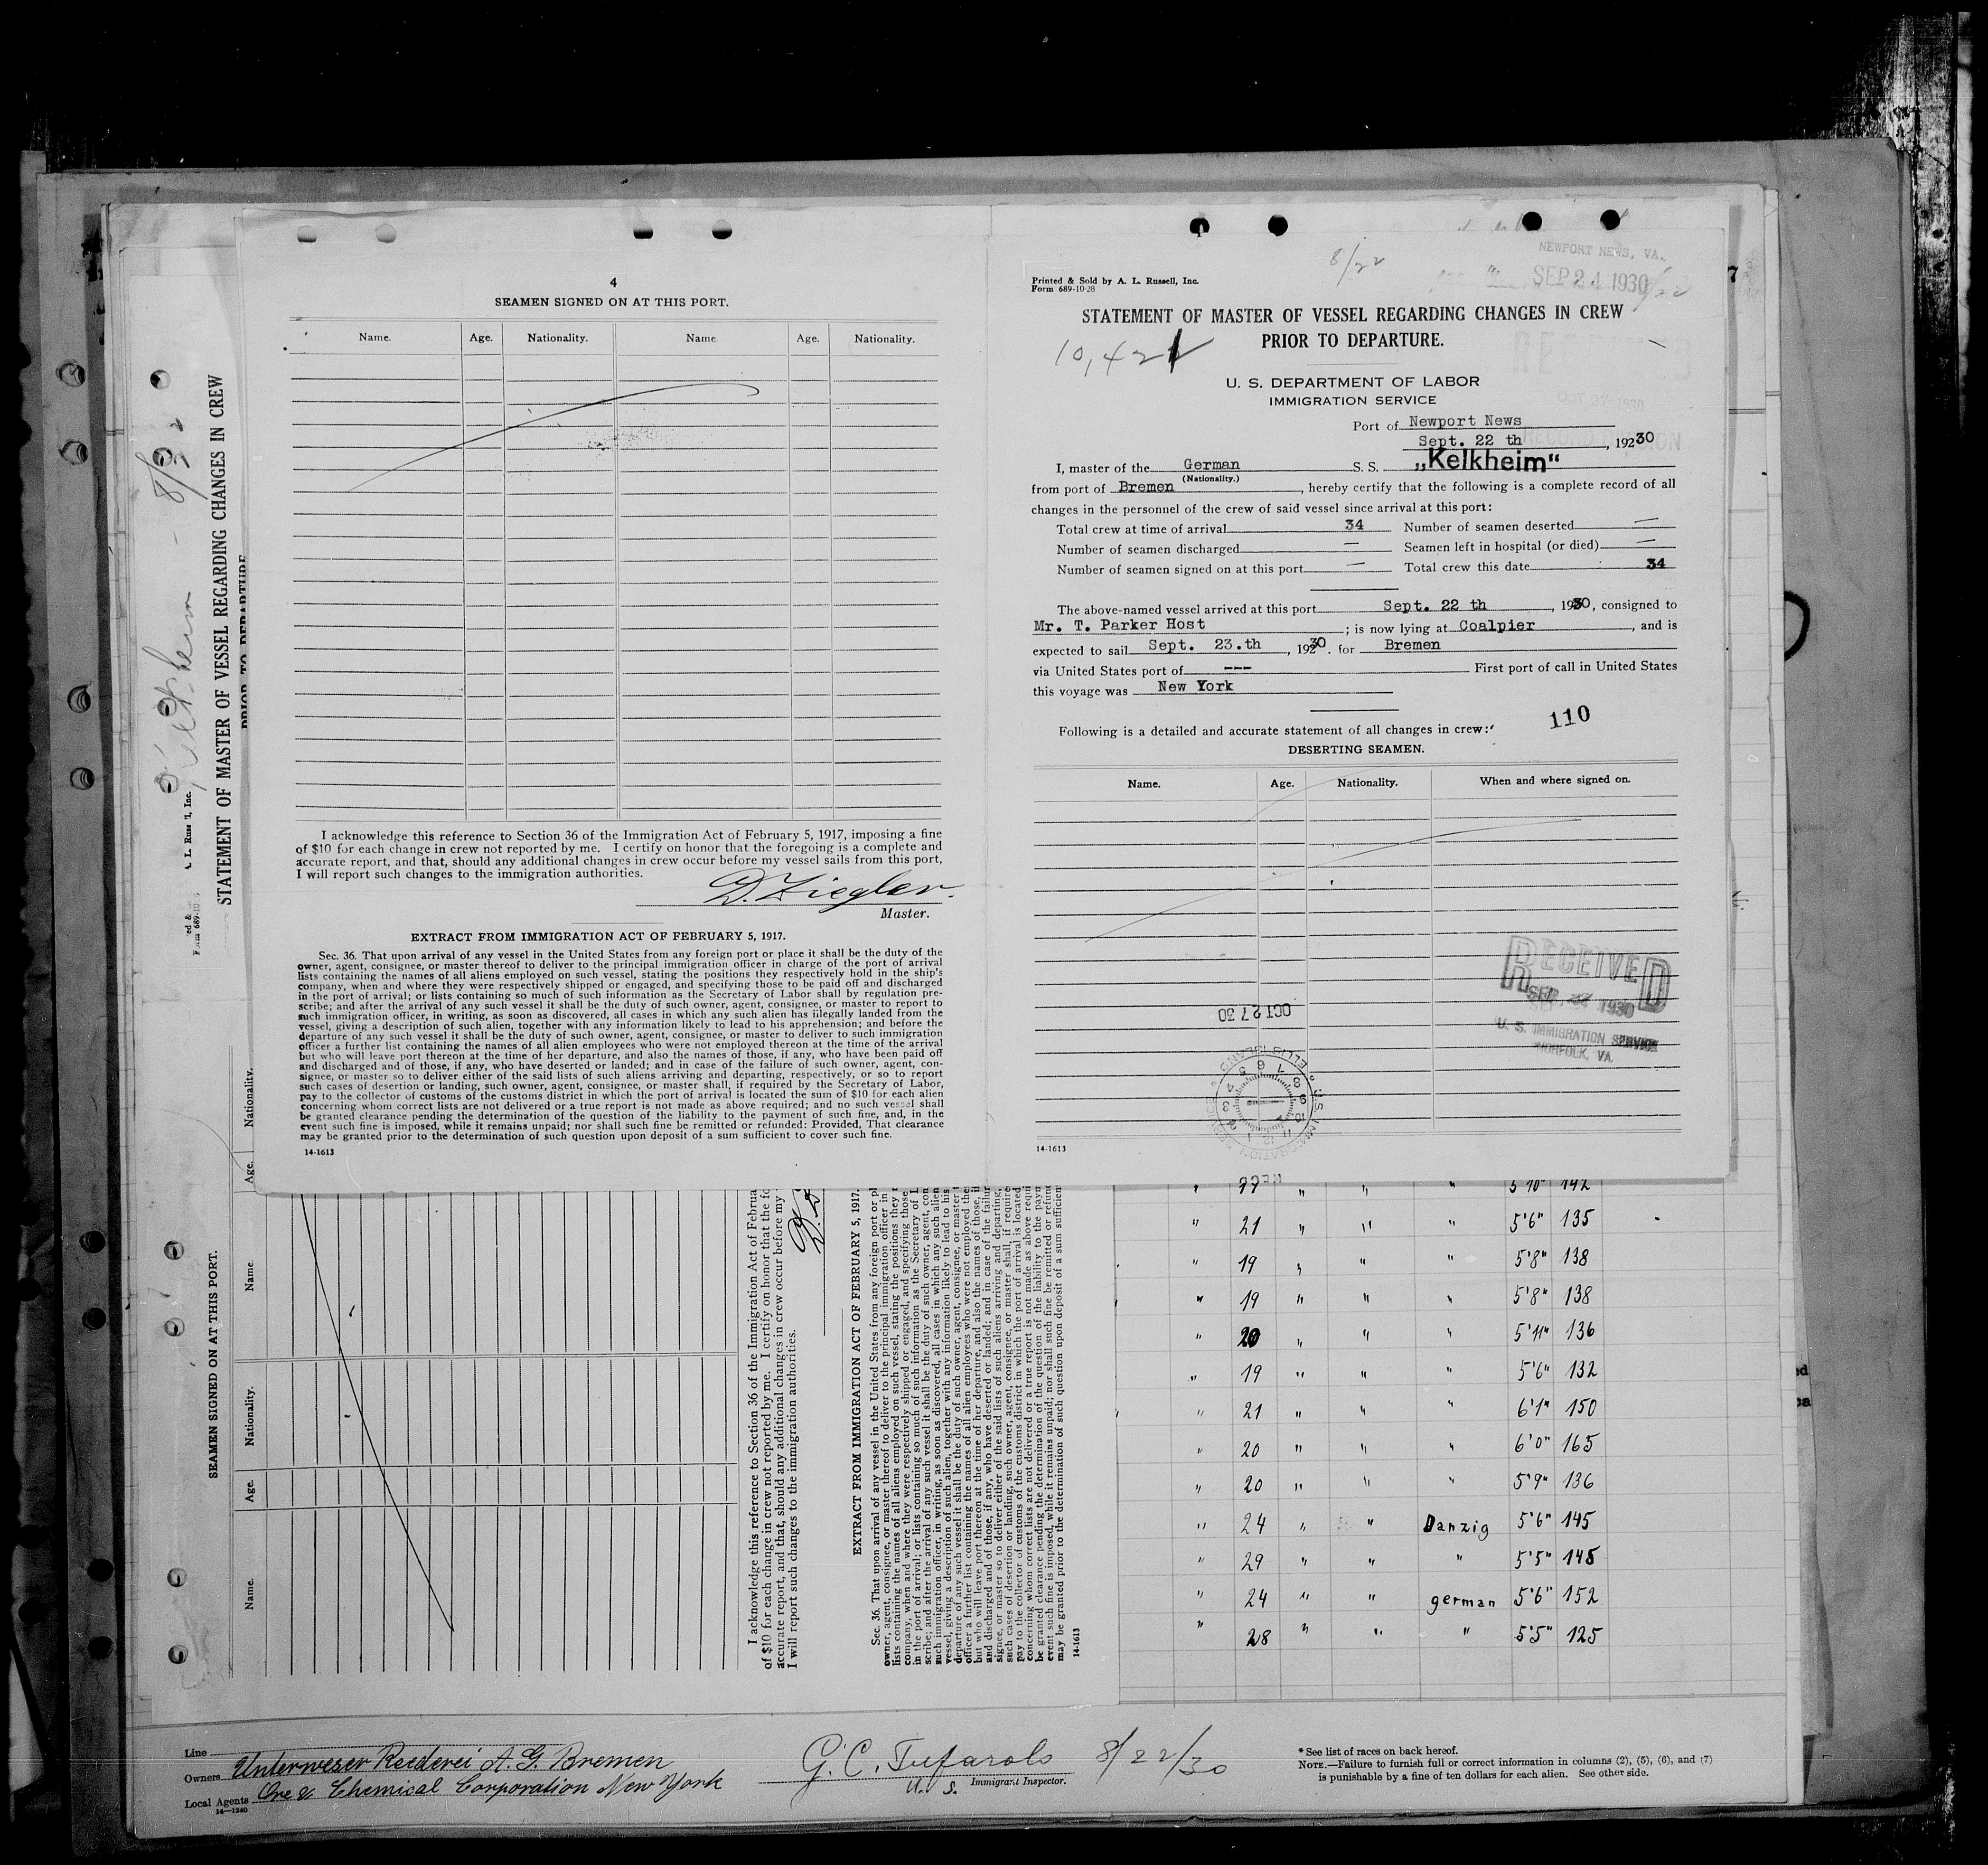 4
SEAMEN SIGNED ON AT THIS PORT.
Name. Age. Nationality. Name. Age. Nationality.
I acknowledge this reference to Section 36 of the Immigration Act of February 5, 1917, imposing a fine
of $10 for each change in crew not reported by me. I certify on honor that the foregoing is a complete and
accurate report, and that, should any additional changes in crew occur before my vessel sails from this port,
I will report such changes to the immigration authorities.
D. Ziegler.
Master.
EXTRACT FROM IMMIGRATION ACT OF FEBRUARY 5, 1917.
Sec. 36. That upon arrival of any vessel in the United States from any foreign port or place it shall be the duty of the
owner, agent, consignee, or master thereof to deliver to the principal immigration officer in charge of the port of arrival
lists containing the names of all aliens employed on such vessel, stating the positions they respectively hold in the ship's
company, when and where they were respectively shipped or engaged, and specifying those to be paid off and discharged
in the port of arrival; or lists containing so much of such information as the Secretary of Labor shall by regulation pre-
scribe; and after the arrival of any such vessel it shall be the duty of such owner, agent, consignee, or master to report to
such immigration officer, in writing, as soon as discovered, all cases in which any such alien has illegally landed from the
vessel, giving a description of such alien, together with any information likely to lead to his apprehension; and before the
departure of any such vessel it shall be the duty of such owner, agent, consignee, or master to deliver to such immigration
officer a further list containing the names of all alien employees who were not employed thereon at the time of the arrival
but who will leave port thereon at the time of her departure, and also the names of those, if any, who have been paid off
and discharged and of those, if any, who have deserted or landed; and in case of the failure of such owner, agent, con-
signee, or master so to deliver either of the said lists of such aliens arriving and departing, respectively, or so to report
such cases of desertion or landing, such owner, agent, consignee, or master shall, if required by the Secretary of Labor,
pay to the collector of customs of the customs district in which the port of arrival is located the sum of $10 for each alien
concerning whom correct lists are not delivered or a true report is not made as above required; and no such vessel shall
be granted clearance pending the determination of the question of the liability to the payment of such fine, and, in the
event such fine is imposed, while it remains unpaid; nor shall such fine be remitted or refunded: Provided, That clearance
may be granted prior to the determination of such question upon deposit of a sum sufficient to cover such fine.
14-1613
8/22
NEWPORT NEWS, VA.
SEP 24 1930
Printed & Sold by A. L. Russell, Inc.
Form 689-10-28
STATEMENT OF MASTER OF VESSEL REGARDING CHANGES IN CREW
PRIOR TO DEPARTURE.
10,421
U. S. DEPARTMENT OF LABOR
IMMIGRATION SERVICE
OCT 27 1930
Port of Newport News
Sept. 22 th, 19230
I, master of the German S. S. „Kelkheim"
(Nationality.)
from port of Bremen, hereby certify that the following is a complete record of all
changes in the personnel of the crew of said vessel since arrival at this port:
Total crew at time of arrival 34 Number of seamen deserted —
Number of seamen discharged — Seamen left in hospital (or died) —
Number of seamen signed on at this port — Total crew this date 34
The above-named vessel arrived at this port Sept. 22 th, 1930, consigned to
Mr. T. Parker Host; is now lying at Coalpier, and is
expected to sail Sept. 23.th, 19230. for Bremen
via United States port of --- First port of call in United States
this voyage was New York
110
Following is a detailed and accurate statement of all changes in crew:
DESERTING SEAMEN.
Name. Age. Nationality. When and where signed on.
RECEIVED
SEP 27 1930
U. S. IMMIGRATION SERVICE
NORFOLK, VA.
OCT 27 30
14-1613
Kelkheim - 8/22
STATEMENT OF MASTER OF VESSEL REGARDING CHANGES IN CREW
PRIOR TO DEPARTURE
SEAMEN SIGNED ON AT THIS PORT.
Name. Age. Nationality. Name. Age. Nationality.
I acknowledge this reference to Section 36 of the Immigration Act of Februa
of $10 for each change in crew not reported by me. I certify on honor that the fo
accurate report, and that, should any additional changes in crew occur before my
I will report such changes to the immigration authorities.
EXTRACT FROM IMMIGRATION ACT OF FEBRUARY 5, 1917.
14-1613
" 21 " " " 5'6" 135
" 19 " " " 5'8" 138
" 19 " " " 5'8" 138
" 20 " " " 5'11" 136
" 19 " " " 5'6" 132
" 21 " " " 6'1" 150
" 20 " " " 6'0" 165
" 20 " " " 5'9" 136
" 24 " " Danzig 5'6" 145
" 29 " " " 5'5" 148
" 24 " " german 5'6" 152
" 28 " " " 5'5" 125
Line
Owners Unterweser Reederei A. G. Bremen
Local Agents Ore & Chemical Corporation New York
14—1240
G. C. Tufarolo 8/22/30
U. S. Immigrant Inspector.
* See list of races on back hereof.
NOTE.—Failure to furnish full or correct information in columns (2), (5), (6), and (7)
is punishable by a fine of ten dollars for each alien. See other side.